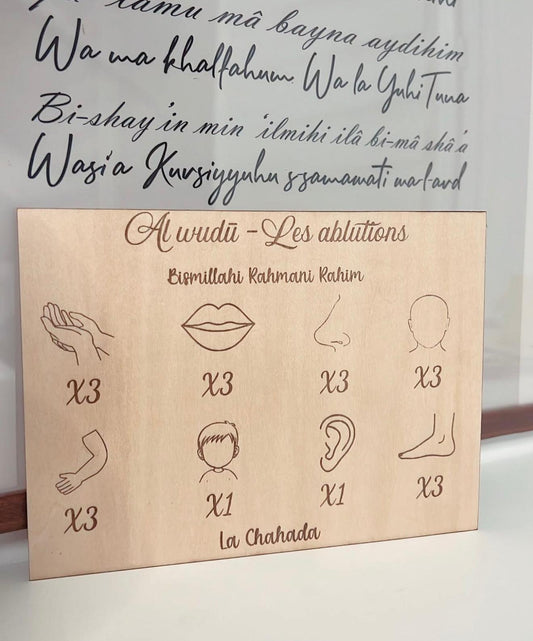 tamu mâ bayna aydihim
Wa ma khalfahum Wa la Yuhi Tuna
Bi-shay'in min 'ilmihi ilâ bi-mâ shâ'a
Wasi'a Kursiyyuhu ssamawati wa-l-ard
Al wudū - Les ablutions
Bismillahi Rahmani Rahim
X3 X3 X3 X3
X3 X1 X1 X3
La Chahada